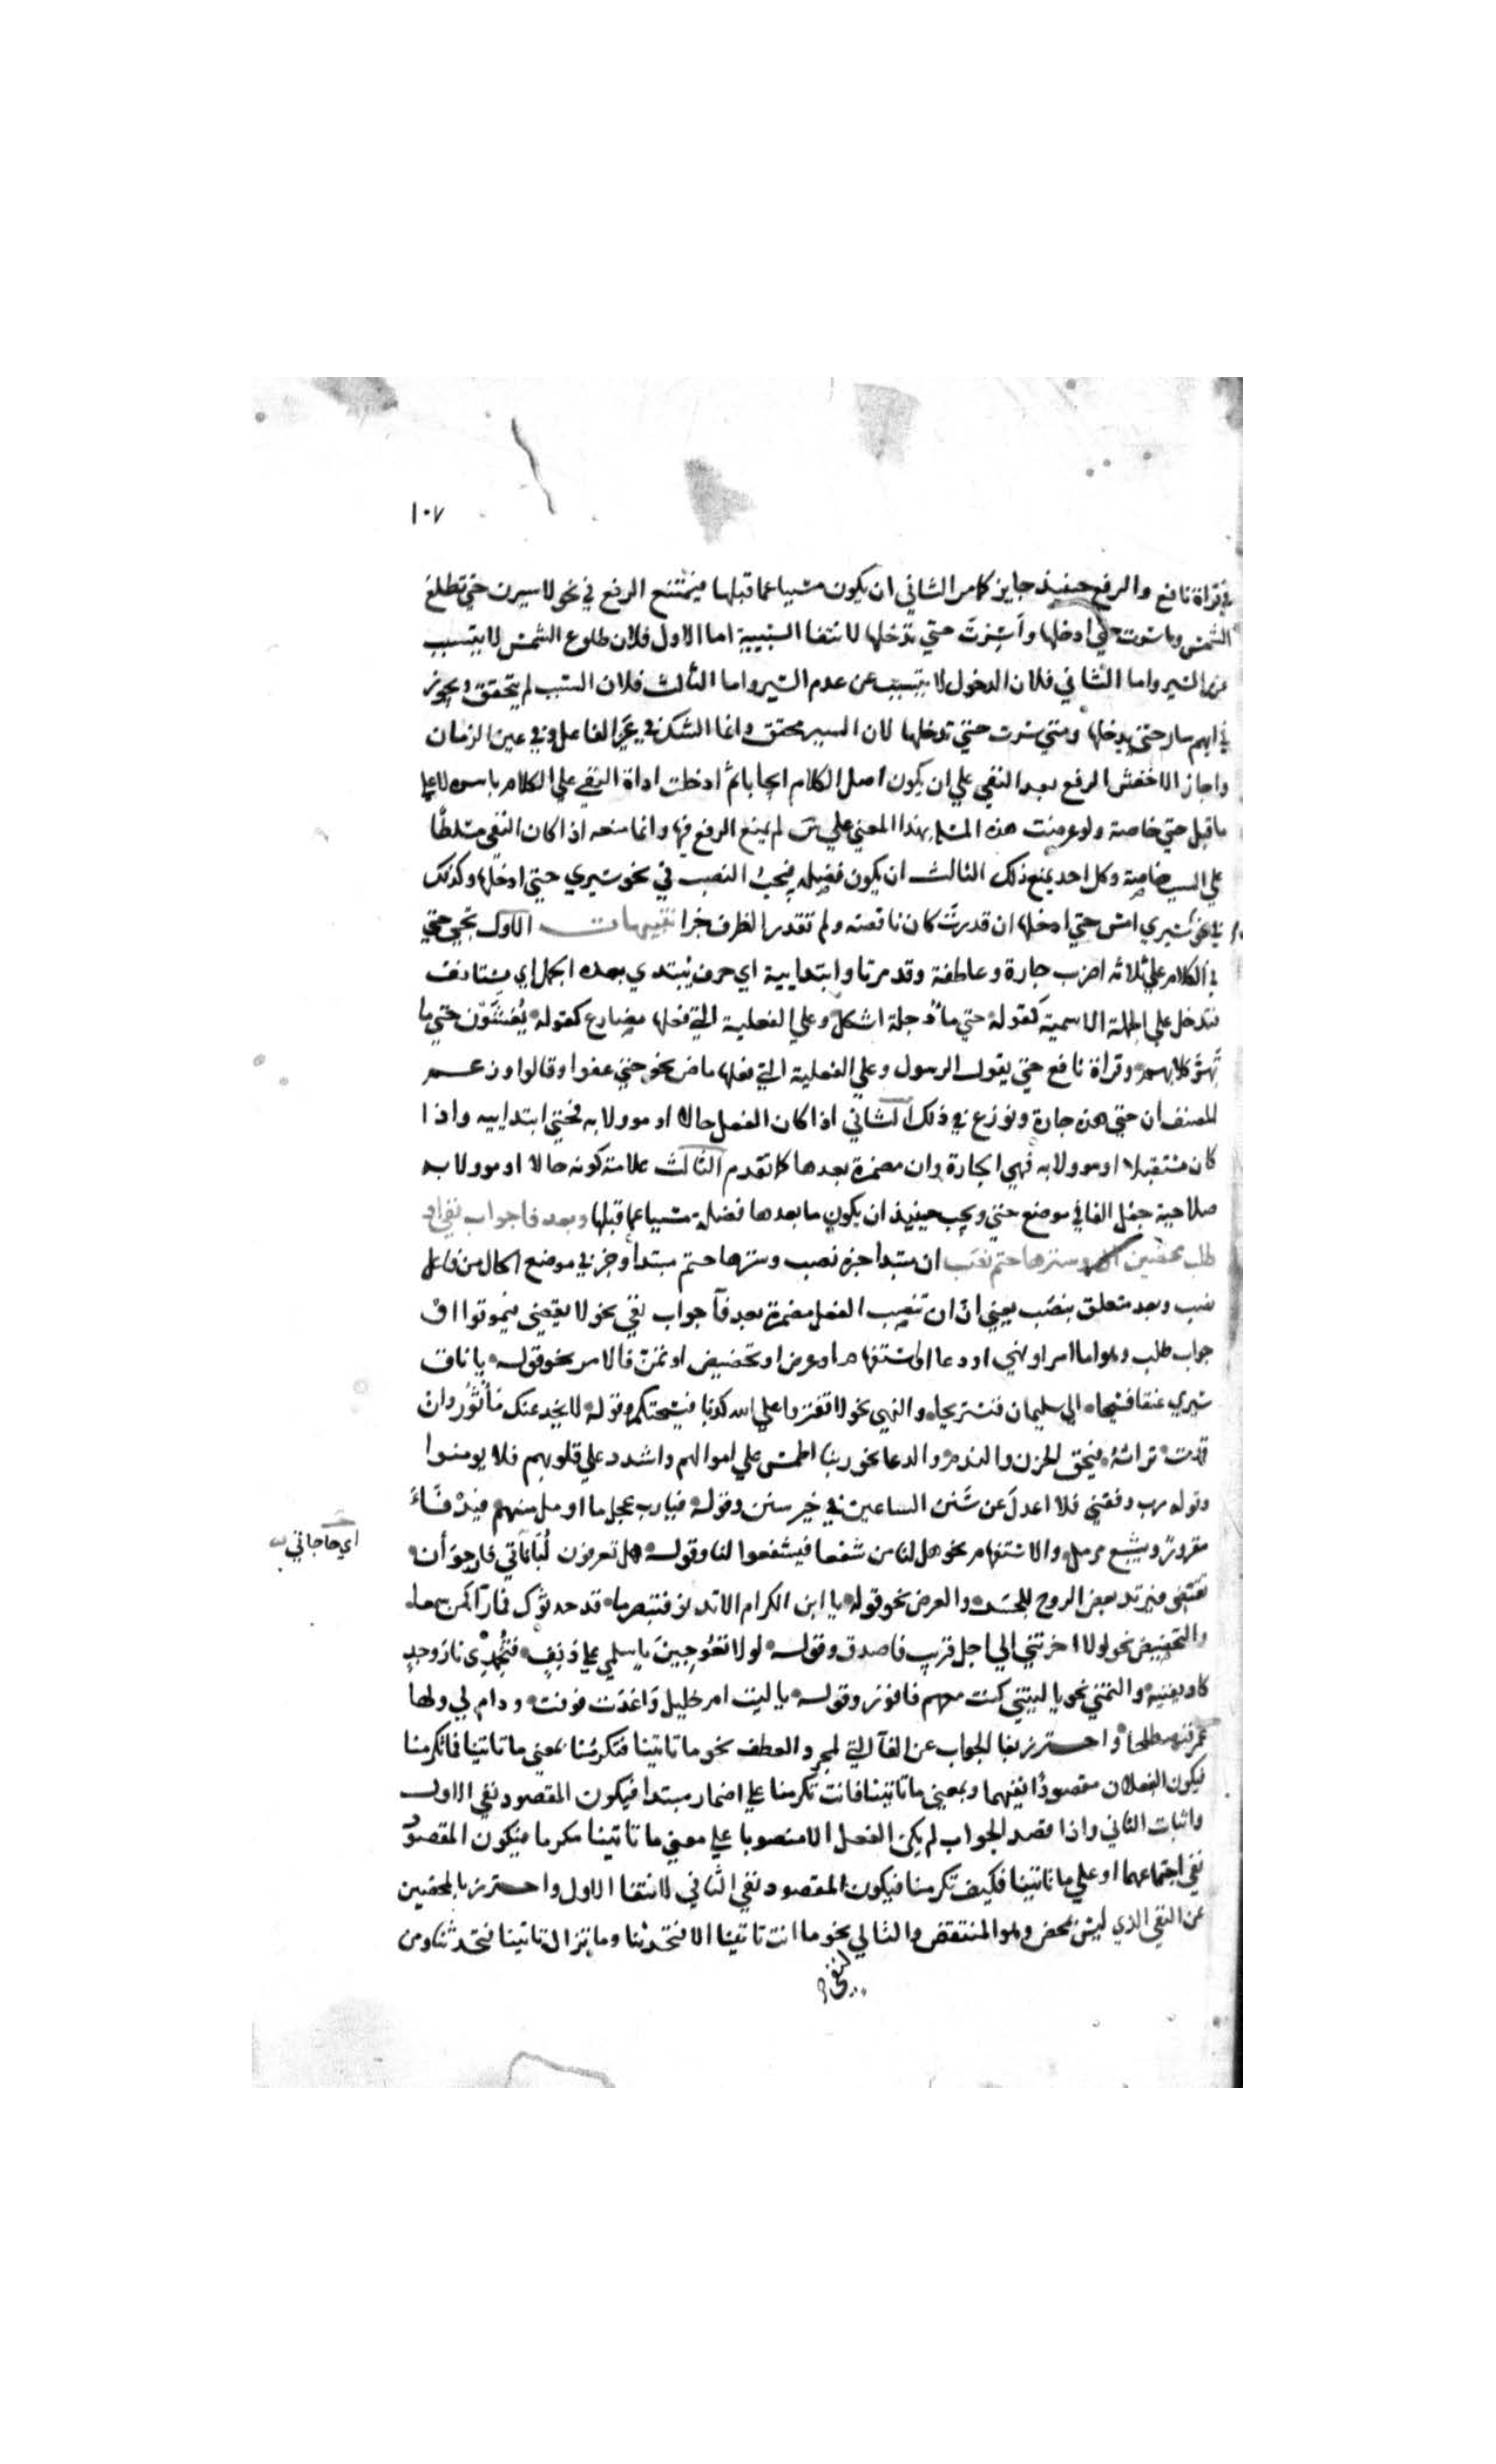 ١٠٧
في قراة نافع والرفع حينيذ جايز كما مر الثاني ان يكون مسببا عما قبلها فيمتنع الرفع في نحو لاسيرن حتي تطلع
الشمس وما سرت حتي ادخلها وأسِرْتَ حتي تدخلها لانتفا السببية اما الاول فلان طلوع الشمس لا يتسبب
عن السير واما الثاني فلان الدخول لا يتسبب عن عدم السير واما الثالث فلان السبب لم يتحقق ويجوز
في ايهم سار حتي يدخلها ومتي سرت حتي تدخلها لان السير محقق وانما الشك في عين الفاعل وفي عين الزمان
واجاز الاخفش الرفع بعد النفي علي ان يكون اصل الكلام ايجابا ثم ادخلت اداة النفي علي الكلام باسره لا علي
ما قبل حتي خاصة ولو عرضت هذه المسئلة بهذا المعني علي س لم يمنع الرفع فيها وانما منعه اذا كان النفي مسلطًا
علي السير خاصة وكل احد يمنع ذلك الثالث ان يكون فضلة فيجب النصب في نحو سيري حتي ادخلها وكذلك
في نحو سيري امس حتي ادخلها ان قدرتَ كان ناقصة ولم تقدر الظرف خبرا تنبيهات الاول تجي حتي
في الكلام علي ثلاثه اضرب جارة وعاطفة وقد مرتا وابتدايية اي حرف يُبتدي بعده الجمل اي يستانف
فتدخل علي الجملة الاسمية كقوله حتي ماءُ دجلة اشكل وعلي الفعلية التي فعلها مضارع كقوله يُغشَوْن حتي ما
تَهِرُّ كلابهم وقراة نافع حتي يقول الرسول وعلي الفعلية التي فعلها ماض نحو حتي عفوا وقالوا وزعم
المصنف ان حتي هذه جارة ونوزع في ذلك الثاني اذا كان الفعل حالا او موولا به فحتي ابتداييه واذا
كان مستقبلا او موولا به فهي الجارة وان مضمرة بعدها كما تقدم الثالث علامة كونه حالا او موولا به
صلاحية جعل الفا في موضع حتي ويجب حينيذ ان يكون ما بعدها فضلة مسببا عما قبلها وبعد فا جواب نفي او
طلب محضين وسترها حتم نصب ان مبتدا خبره نصب وسترها حتم مبتدا وخبر في موضع الحال من فاعل
نصب وبعد متعلق بنصب يعني ان ان تنصب الفعل مضمرة بعد فآ جواب نفي نحو لا يقضي فيموتوا او
جواب طلب وهو اما امر او نهي او دعا او استفهام او عرض او تحضيض او تمن فالامر نحو قوله يا ناق
سيري عنقا فسيحا الي سليمان فنستريحا والنهي نحو لا تفتروا علي الله كذبا فيسحتكم وقوله لا يخدعنك مأثور وان
قدمت تراته فيحق الحزن والندم والدعا نحو ربنا اطمس علي اموالهم واشدد علي قلوبهم فلا يومنوا
وقوله رب وفقني فلا اعدلَ عن سَنن الساعين في خير سنن وقوله فيارب عجل ما اومل منهم فيدْفَأَ
مقرور ويشبع مرمل والاستفهام نحو هل لنا من شفعا فيشفعوا لنا وقوله هل تعرفون لُبَاناتي فارجو أن
تُقضي فيرتد بعض الروح للجسد والعرض نحو قوله يا ابن الكرام الا تدنو فتبصر ما قد حدثوك فما رآ كمن سمعا
والتحضيض نحو لولا اخرتني الي اجل قريب فاصدق وقوله لولا تعُوجينَ يا سلمي علي دَنِفٍ فتُخْمِدِي نار وجدٍ
كاد يفنيه والتمني نحو يا ليتني كنت معهم فافوز وقوله يا ليت ام خليل واعَدَت فوفت ودام لي ولها
عمر فنصطلحا واحترز بفا الجواب عن الفآ التي لمجرد العطف نحو ما تاتينا فتكرمُنا بمعني ما تاتينا فما تكرمنا
فيكون الفعلان مقصودًا نفيهما وبمعني ما تاتينا فانت تكرمنا علي اضمار مبتدا فيكون المقصود نفي الاول
واثبات الثاني واذا قصد الجواب لم يكن الفعل الا منصوبا علي معني ما تاتينا مكرما فيكون المقصود
نفي اجتماعهما او علي ما تاتينا فكيف تكرمنا فيكون المقصود نفي الثاني لانتفا الاول واحترز بالمحضين
عن النفي الذي ليس بمحض وهو المنتقض والتالي نحو ما انت تاتينا الا فتحدثنا وما تزال تاتينا فتحدثنا ومن
اي حاجاتي
لنفي